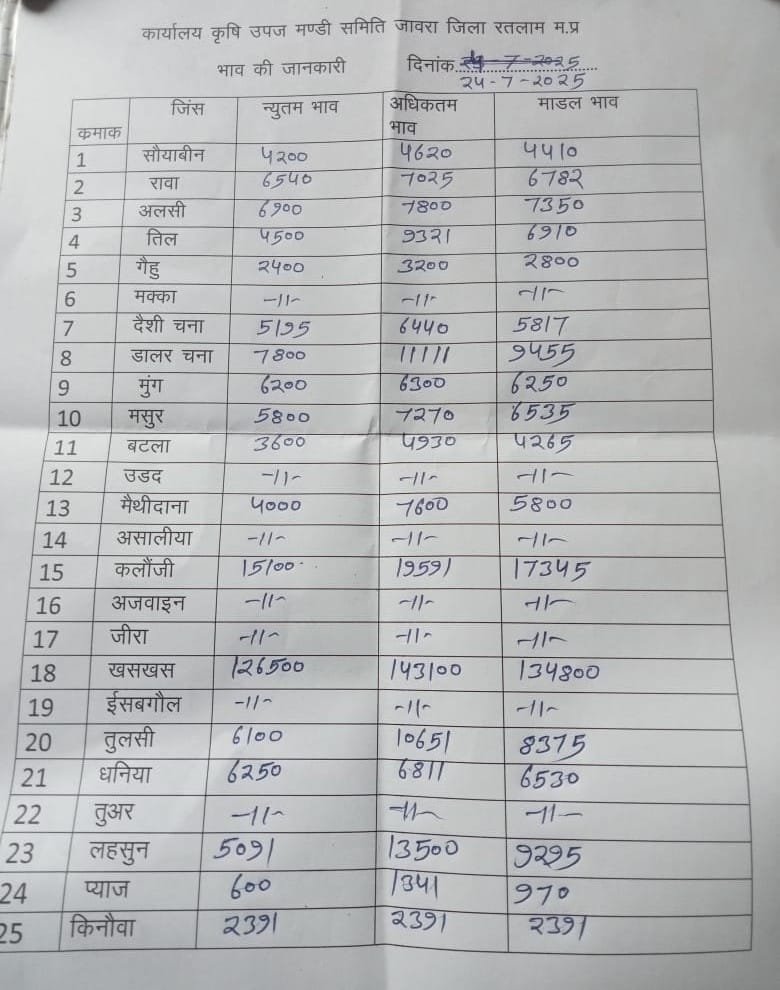 कार्यालय कृषि उपज मण्डी समिति जावरा जिला रतलाम म.प्र
भाव की जानकारी दिनांक 24-7-2025
24-7-2025
कमाक जिंस न्युतम भाव अधिकतम भाव माडल भाव
1 सौयाबीन 4200 4620 4410
2 रावा 6540 7025 6782
3 अलसी 6900 7800 7350
4 तिल 4500 9321 6910
5 गैहु 2400 3200 2800
6 मक्का -11- -11- -11-
7 दैशी चना 5195 6440 5817
8 डालर चना 7800 11111 9455
9 मुंग 6200 6300 6250
10 मसुर 5800 7270 6535
11 बटला 3600 4930 4265
12 उडद -11- -11- -11-
13 मैथीदाना 4000 7600 5800
14 असालीया -11- -11- -11-
15 कलौंजी 15100 19591 17345
16 अजवाइन -11- -11- -11-
17 जीरा -11- -11- -11-
18 खसखस 126500 143100 134800
19 ईसबगौल -11- -11- -11-
20 तुलसी 6100 10651 8375
21 धनिया 6250 6811 6530
22 तुअर -11- -11- -11-
23 लहसुन 5091 13500 9295
24 प्याज 600 1341 970
25 किनौवा 2391 2391 2391